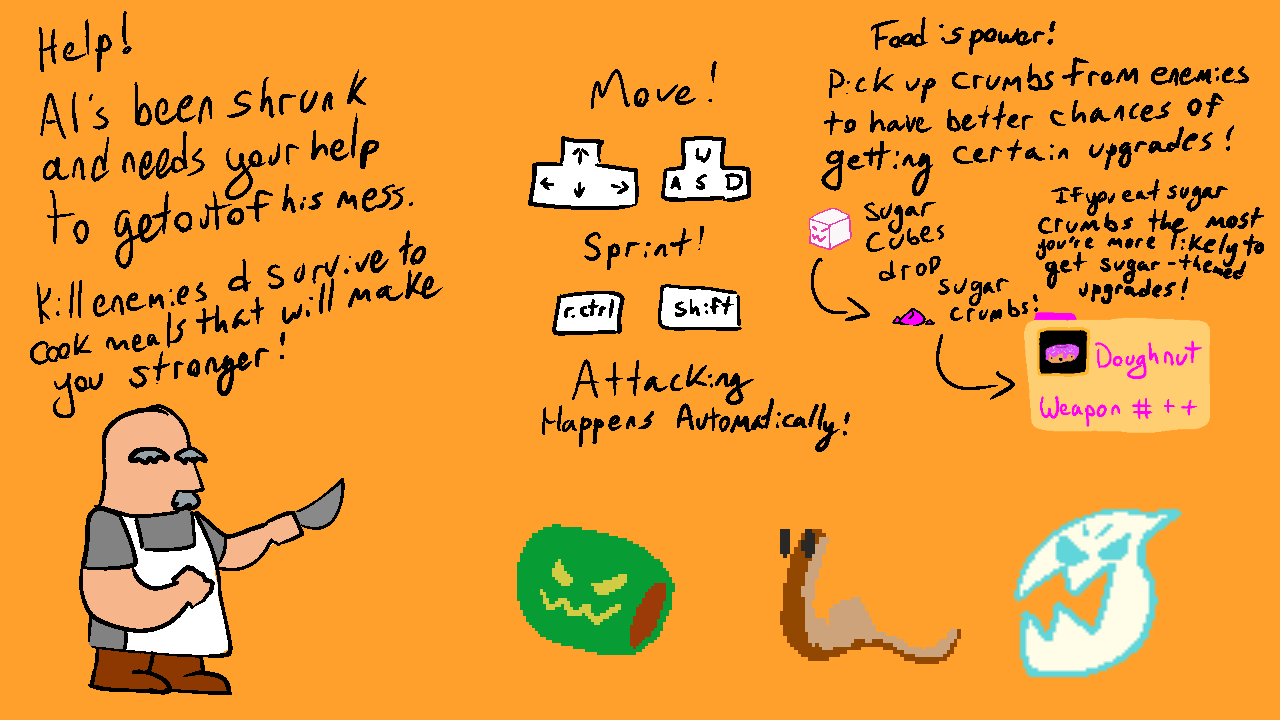 Help!
Al's been shrunk
and needs your help
to get out of his mess.
Kill enemies & survive to
cook meals that will make
you stronger!
Move!
↑
← ↓ →
W
A S D
Sprint!
r.ctrl shift
Attacking
Happens Automatically!
Food is power!
Pick up crumbs from enemies
to have better chances of
getting certain upgrades!
Sugar
Cubes
drop
Sugar
crumbs!
If you eat sugar
crumbs the most
you're more likely to
get sugar-themed
upgrades!
Doughnut
Weapon # ++